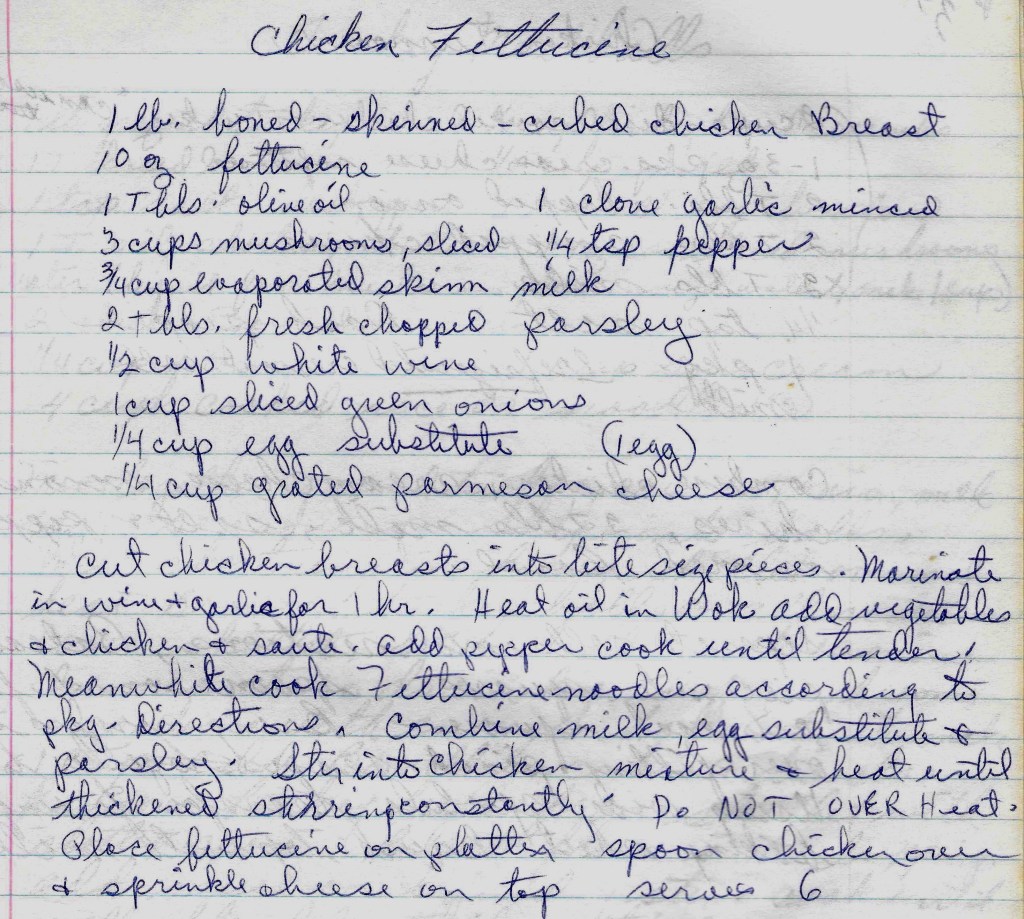 Chicken Fettucine
1 lb. boned - skinned - cubed chicken Breast
10 oz fettucine
1 Tbls. olive oil 1 clove garlic minced
3 cups mushrooms, sliced 1/4 tsp pepper
3/4 cup evaporated skim milk
2 Tbls. fresh chopped parsley
1/2 cup white wine
1 cup sliced green onions
1/4 cup egg substitute (1 egg)
1/4 cup grated parmesan cheese
Cut chicken breasts into bite size pieces. Marinate
in wine + garlic for 1 hr. Heat oil in Wok add vegetables
& chicken & saute. add pepper cook until tender.
Meanwhile cook Fettucine noodles according to
pkg. Directions. Combine milk, egg substitute &
parsley. Stir into chicken mixture & heat until
thickened stirring constantly. Do NOT OVER Heat.
Place fettucine on platter spoon chicken over
& sprinkle cheese on top serves 6